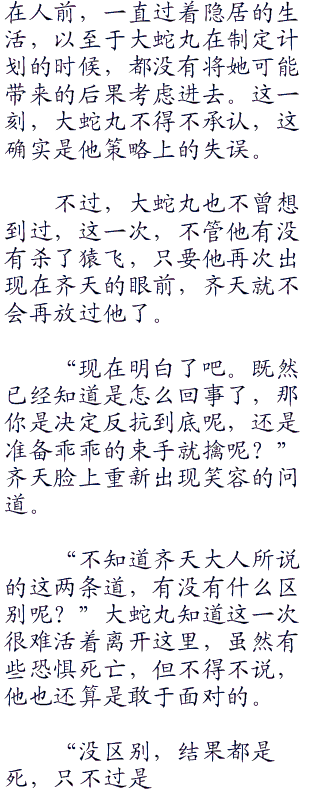 在人前，一直过着隐居的生
活，以至于大蛇丸在制定计
划的时候，都没有将她可能
带来的后果考虑进去。这一
刻，大蛇丸不得不承认，这
确实是他策略上的失误。
不过，大蛇丸也不曾想
到过，这一次，不管他有没
有杀了猿飞，只要他再次出
现在齐天的眼前，齐天就不
会再放过他了。
“现在明白了吧。既然
已经知道是怎么回事了，那
你是决定反抗到底呢，还是
准备乖乖的束手就擒呢？”
齐天脸上重新出现笑容的问
道。
“不知道齐天大人所说
的这两条道，有没有什么区
别呢？”大蛇丸知道这一次
很难活着离开这里，虽然有
些恐惧死亡，但不得不说，
他也还算是敢于面对的。
“没区别，结果都是
死，只不过是